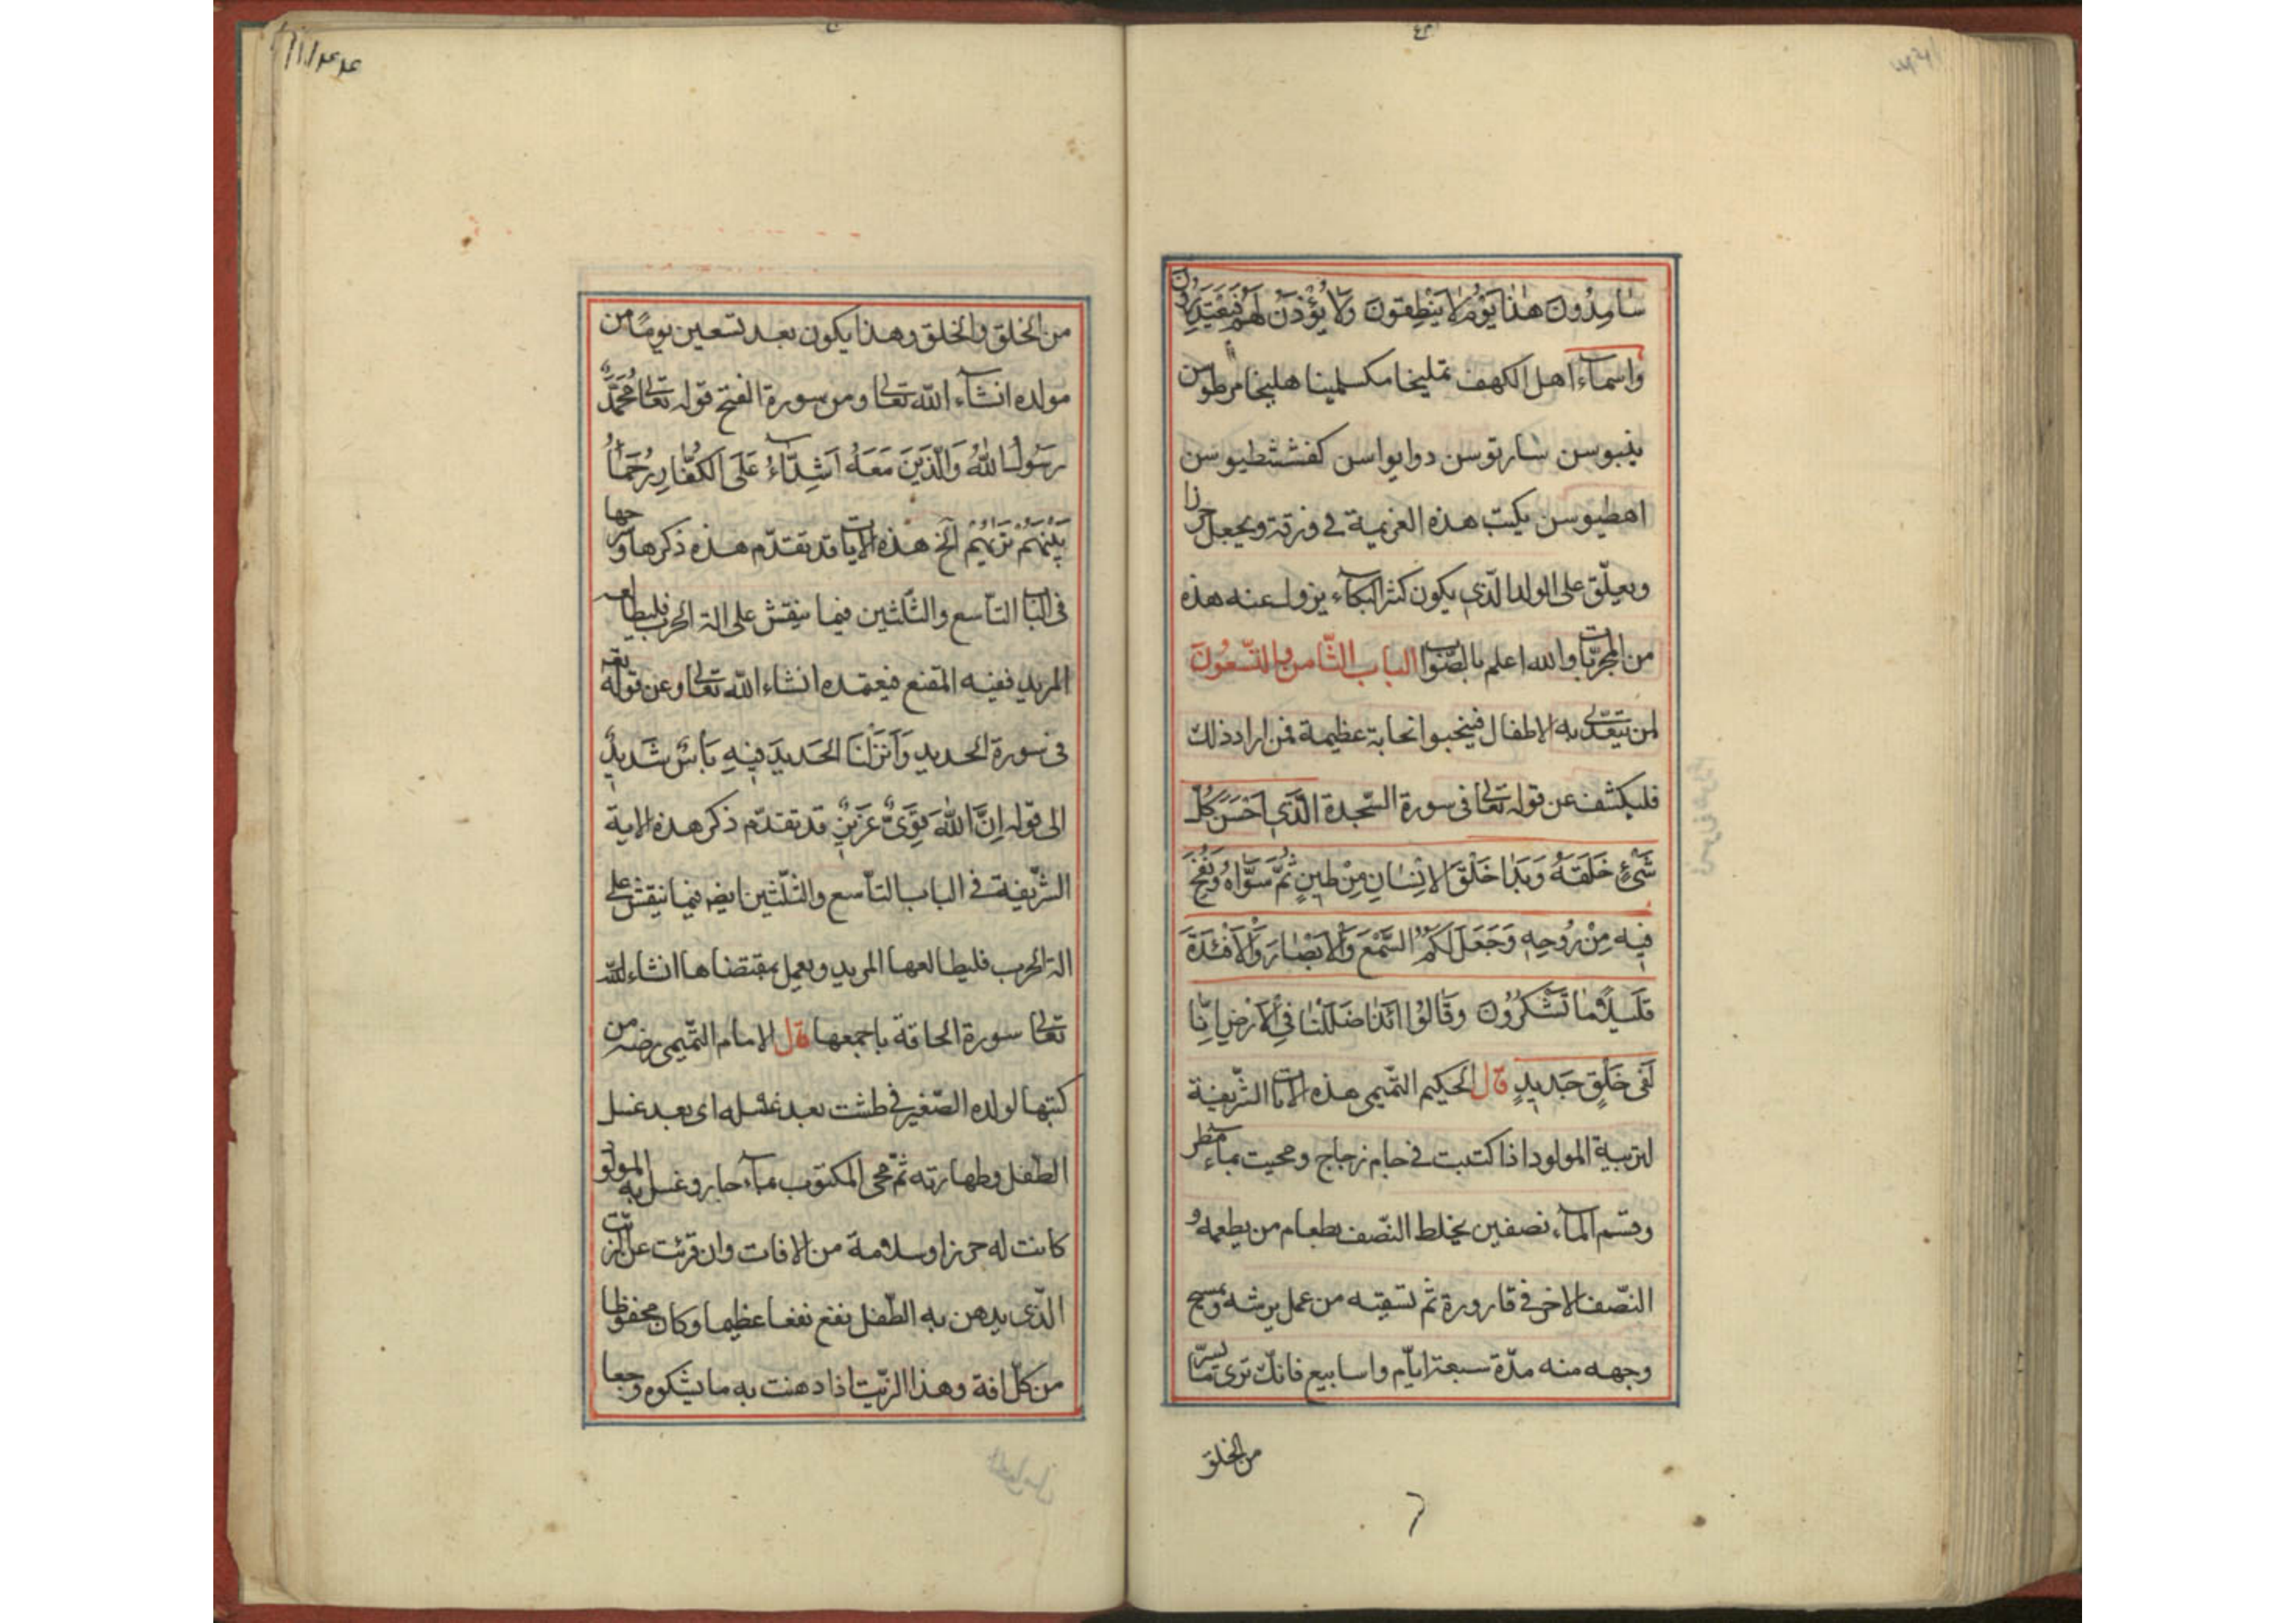 سَامِدُونَ هٰذَا يَوْمُ لَا يَنْطِقُونَ وَلَا يُؤْذَنُ لَهُمْ فَيَعْتَذِرُونَ
واسماء اهل الكهف تمليخا مكسلمينا هليخا مرطوس
ينبوسن سارتوسن دوابواسن كفششطيوسن
اهطيوسن يكتب هذه العزيمة في ورقة ويجعل حرزا
ويعلّق على الولد الّذى يكون كثر البكاء يزول عنه هذه
من المجرّبات والله اعلم بالصّواب الباب الثّامن والتّسعون
لمن به الاطفال فينجبوا نجابة عظيمة فمن اراد ذلك
فليكشف عن قوله تعالى فى سورة السّجدة الَّذى اَحْسَنَ كُلَّ
شَىْءٍ خَلَقَهُ وَبَدَا خَلْقَ الْاِنْسَانِ مِنْ طِينٍ ثُمَّ سَوَّاهُ وَنَفَخَ
فِيهِ مِنْ رُوحِهِ وَجَعَلَ لَكُمُ السَّمْعَ وَالْاَبْصَارَ وَالْاَفْئِدَةَ
قَلِيلًا مَا تَشْكُرُونَ وَقَالُوا ائذَا ضَلَلْنَا فِى الْاَرْضِ اِنَّا
لَفِى خَلْقٍ جَدِيدٍ قال الحكيم التّميمى هذه الايات الشّريفة
لتربية المولود اذا كتبت فى جام زجاج ومحيت بماء مطر
وقسّم الماء نصفين يخلط النّصف بطعام من يطعمه و
النّصف الاخر فى قارورة ثم تسقيه من عمل يرشه ويمسح
وجهه منه مدّة سبعة ايّام واسابيع فانك ترى ما يسرّ
من الخلق
من الخلق والخلق وهذا يكون بعد تسعين يومًا من
مولده انشاء الله تعالى ومن سورة الفتح قوله تعالى مُحَمَّدٌ
رَسُولُ اللّٰهِ وَالَّذِينَ مَعَهُ اَشِدَّاءُ عَلَى الكُفَّارِ رُحَمَاءُ
بَيْنَهُمْ تَرَيهُمْ الخ هذه الايات قد تقدّم هذه ذكرها وشرحها
فى الباب التاسع والثّلثين فيما ينقش على الة الحرب فليطالعه
المريد ففيه المقنع فيعتمده انشاء الله تعالى وعن قوله تعـ
فى سورة الحديد وَاَنْزَلْنَا الحَديدَ فِيهِ بَأسٌ شَديدٌ
الى قوله اِنَّ اللّٰهَ قَوِىٌّ عَزِيزٌ قد تقدّم ذكر هذه الاية
الشّريفة فى الباب التاسع والثّلثين ايضه فيما ينقش على
الة الحرب فليطالعها المريد ويعمل بمقتضاها انشاء الله
تعالى سورة الحاقة باجمعها قال الامام التّميمى رضه من
كتبها لولده الصّغير فى طشت بعد غسله اى بعد غسل
الطّفل وطهارته ثمّ محى المكتوب بماء حار وغسل به المولود
كانت له حرزا وسلامة من الافات وان قرئت على الزّيت
الّذى يدهن به الطّفل نفع نفعا عظيما وكان محفوظا
من كلّ افة وهذا الزّيت اذا دهنت به ما يشكوه وجعا